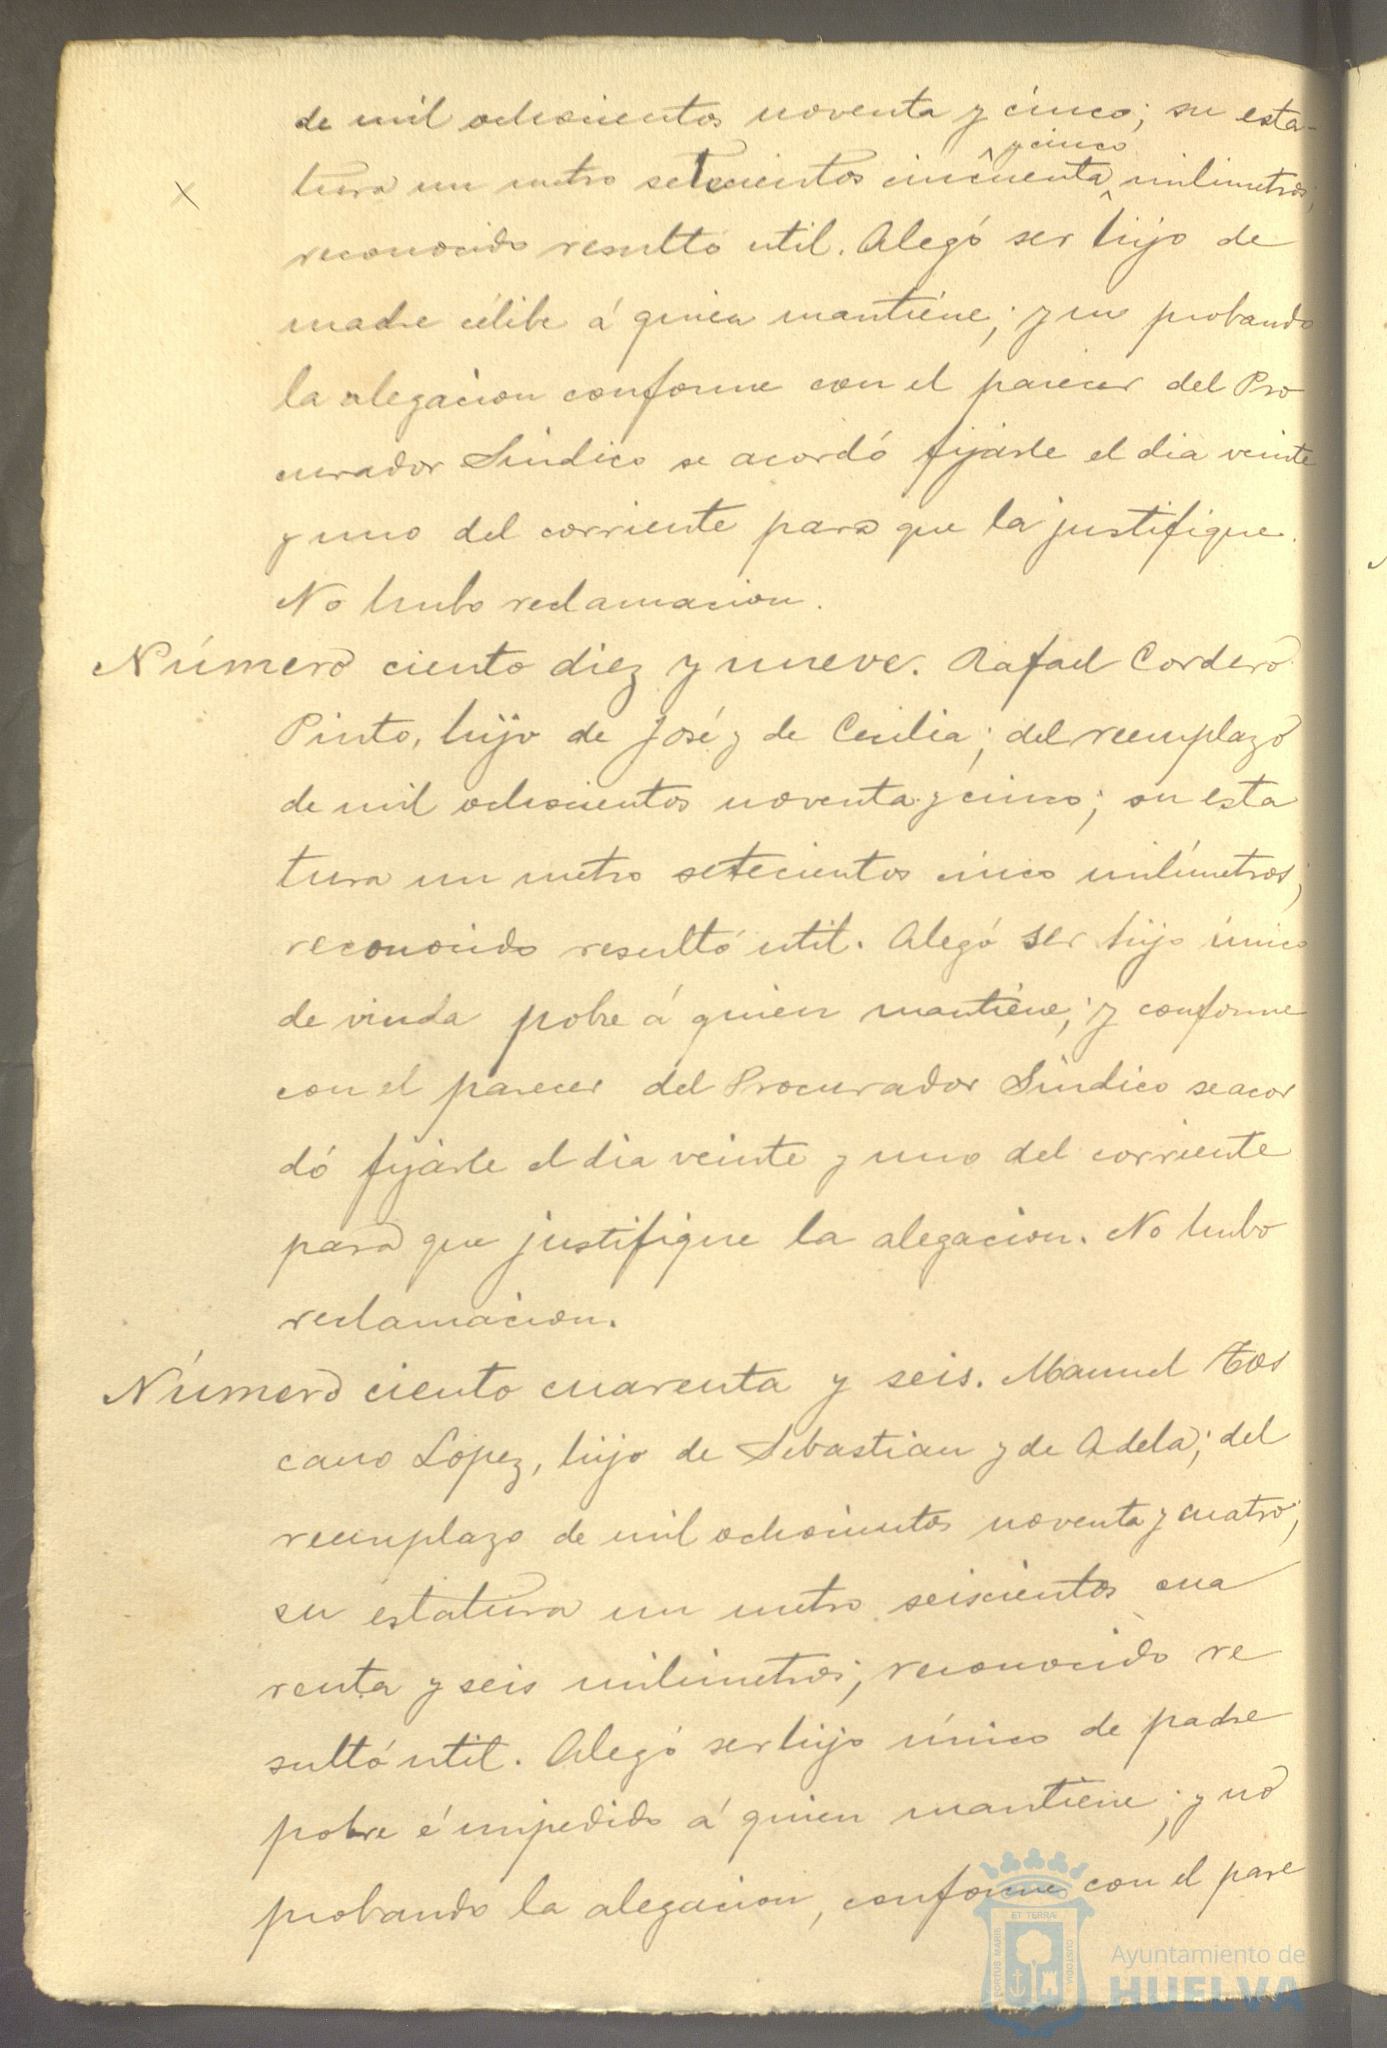 de mil ochocientos noventa y cinco; su esta-
y cinco
tura un metro setecientos cincuenta milimetros;
reconocido resultó util. Alegó ser hijo de
madre célibe á quien mantiene; y no probando
la alegacion conforme con el parecer del Pro
curador Síndico se acordó fijarle el dia veinte
y uno del corriente para que la justifique.
No hubo reclamacion.
Número ciento diez y nueve. Rafael Cordero
Pinto, hijo de José y de Cecilia; del reemplazo
de mil ochocientos noventa y cinco; su esta
tura un metro setecientos cinco milímetros;
reconocido resultó util. Alegó ser hijo único
de viuda pobre á quien mantiene; y conforme
con el parecer del Procurador Síndico se acor
dó fijarle el dia veinte y uno del corriente
para que justifique la alegacion. No hubo
reclamacion.
Número ciento cuarenta y seis. Manuel Tos
cano Lopez, hijo de Sebastian y de Adela; del
reemplazo de mil ochocientos noventa y cuatro;
su estatura un metro seiscientos cua
renta y seis milimetros; reconocido re
sultó util. Alegó ser hijo único de padre
pobre é impedido á quien mantiene; y no
probando la alegacion, conforme con el pare
PORTUS MARIS ET TERRÆ CUSTODIA
Ayuntamiento de
HUELVA